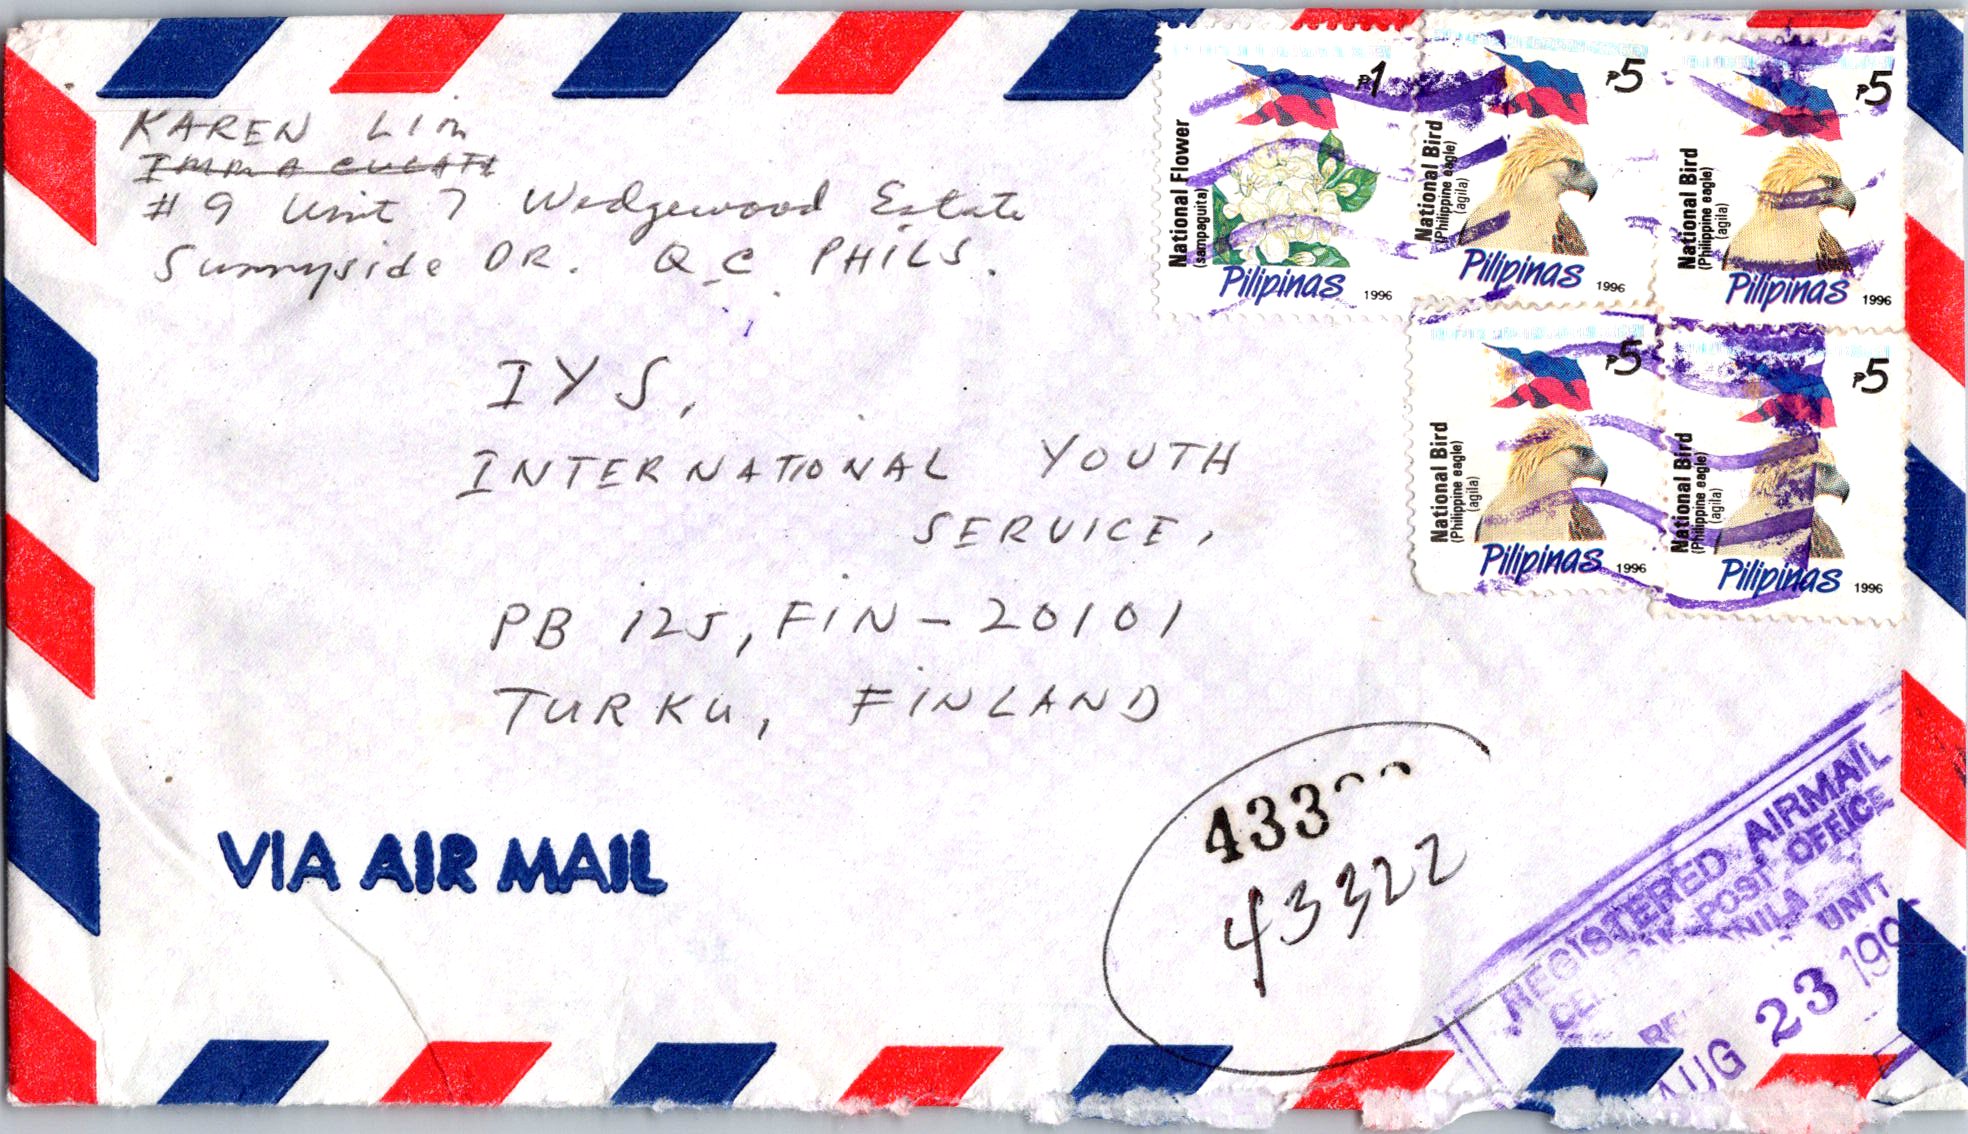 KAREN LIM
IMMACULATE
# 9 Unit 7 Wedgewood Estate
Sunnyside DR. QC PHILS.
₱1
National Flower
(sampaguita)
Pilipinas 1996
₱5
National Bird
(Philippine eagle)
(agila)
Pilipinas 1996
₱5
National Bird
(Philippine eagle)
(agila)
Pilipinas 1996
₱5
National Bird
(Philippine eagle)
(agila)
Pilipinas 1996
₱5
National Bird
(Philippine eagle)
(agila)
Pilipinas 1996
IYS,
INTERNATIONAL YOUTH
SERVICE,
PB 125, FIN - 20101
TURKU, FINLAND
VIA AIR MAIL
433
43322
REGISTERED AIRMAIL
POST OFFICE
UNIT
AUG 23 199